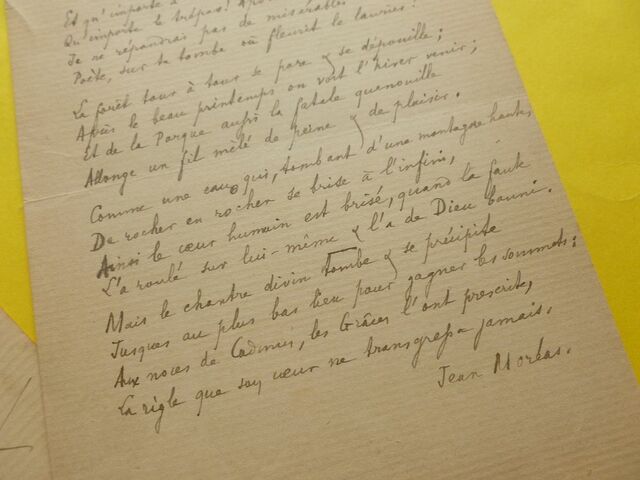 Et qu'importe
Qu'importe le trépas!
Je ne répandrai pas de misérables
Poète, sur ta tombe où fleurit le laurier!
La forêt tour à tour se pare & se dépouille;
Après le beau printemps on voit l'hiver venir;
Et de la Parque aussi la fatale quenouille
Allonge un fil mêlé de peine & de plaisir.
Comme une eau qui, tombant d'une montagne haute,
De rocher en rocher se brise à l'infini,
Ainsi le cœur humain est brisé, quand la faute
L'a roulé sur lui-même & l'a de Dieu banni.
Mais le chantre divin tombe & se précipite
Jusques au plus bas lieu pour gagner les sommets:
Aux noces de Cadmus, les Grâces l'ont prescrite,
La règle que son cœur ne transgressa jamais.
Jean Moréas.